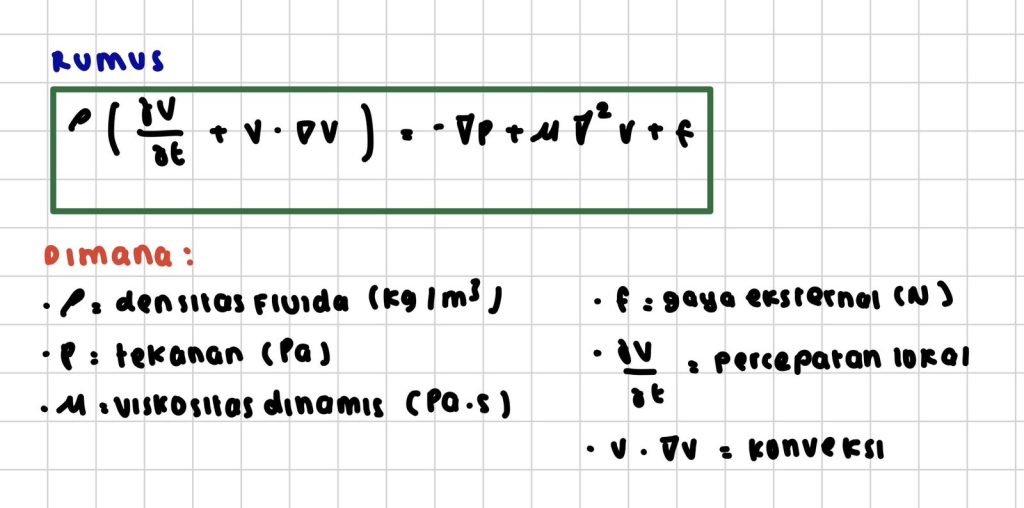 RUMUS
ρ (∂V/∂t + V · ∇V) = -∇P + μ ∇² V + f
Dimana :
· ρ = densitas Fluida (kg/m³)
· P = tekanan (Pa)
· μ = viskositas dinamis (Pa.s)
· f = gaya eksternal (N)
· ∂V/∂t = percepatan lokal
· V · ∇V = konveksi